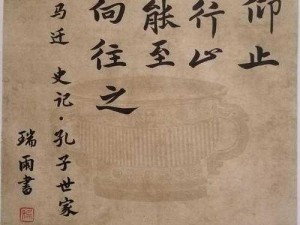 仰止
行止
能至
向往之
马迁 史记·孔子世家
瑞雨书